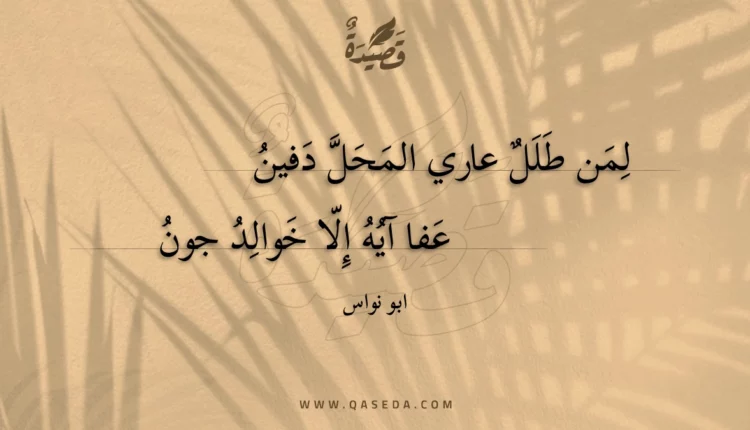 قَصِيْدَةٌ
لِمَن طَلَلٌ عاري المَحَلَّ دَفينُ
عَفا آيُهُ إِلّا خَوالِدُ جونُ
ابو نواس
WWW.QASEDA.COM